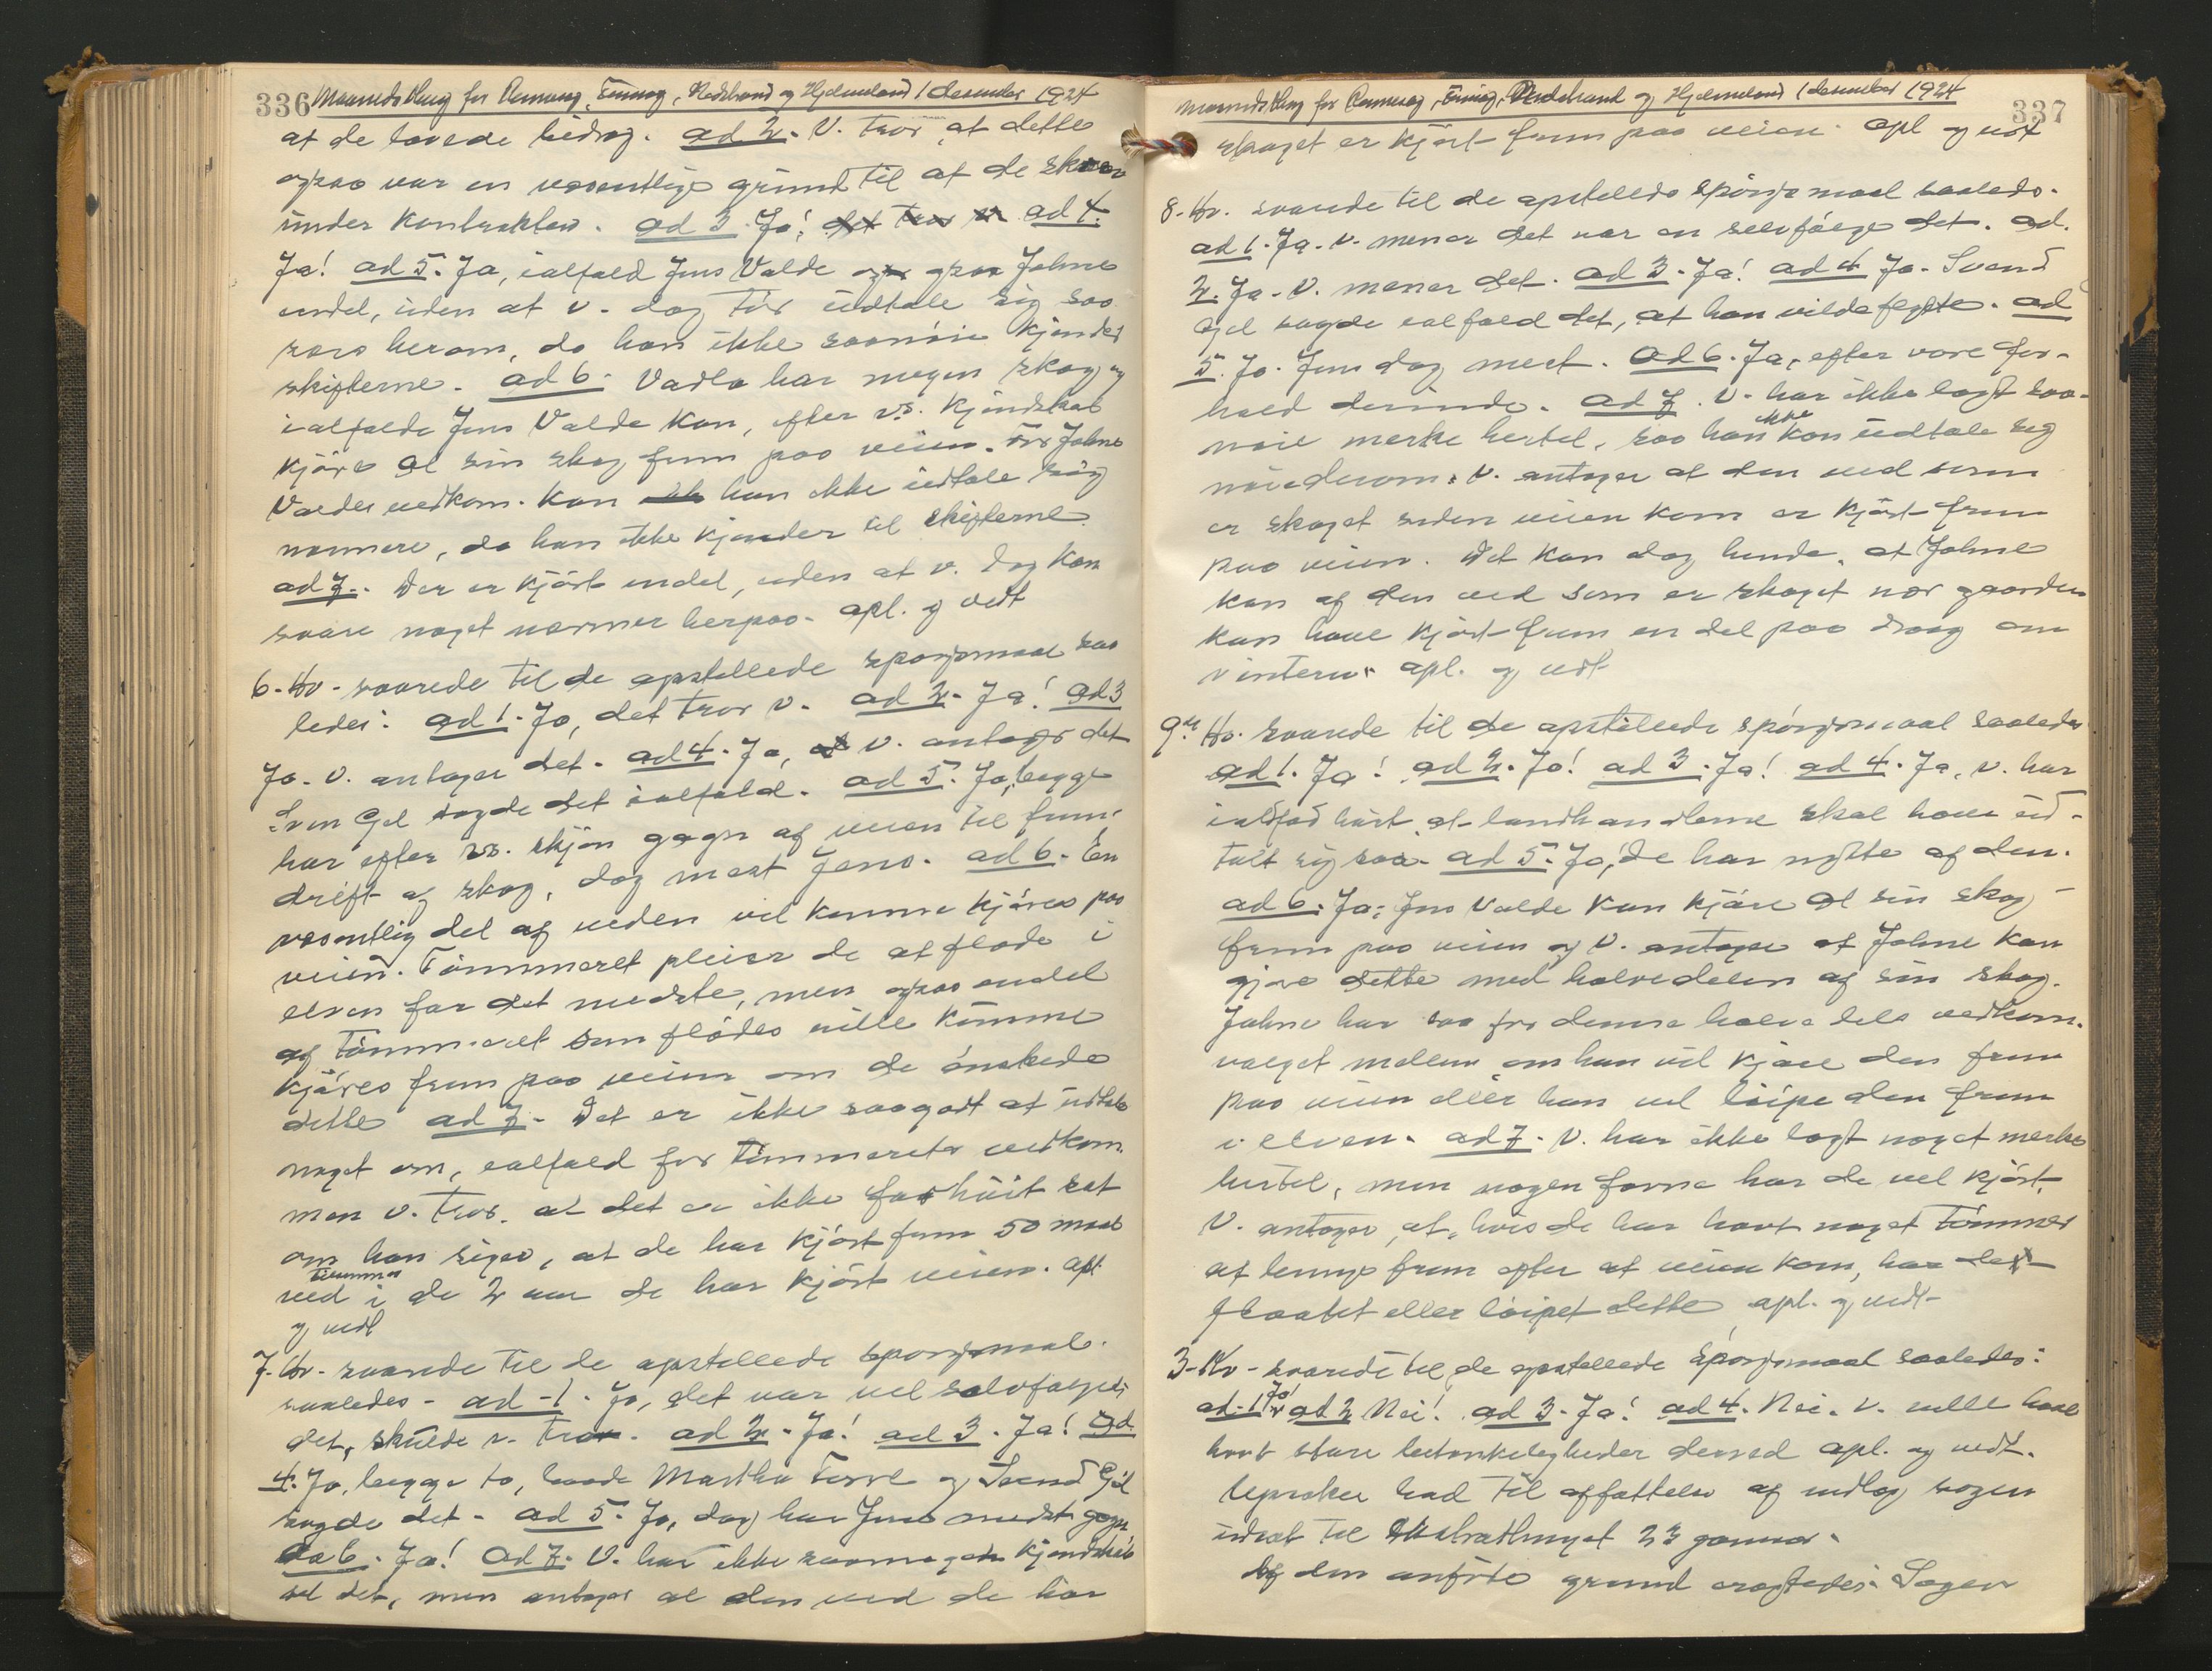 336 Maanedsthing for Aarnaug, Finnøy, Nedstrand og Hjelmeland 1 desember 1924
at de lovede bidrag. ad 2. V. tror, at dette
ogsaa var en væsentlige grund til at de skrev
under kontrakten. ad 3. Ja! det tror v. ad 4.
Ja! ad 5. Ja, ialfald Jens Valde ogsaa Johne
endel, uden at v. dog tør udtale sig saa
herom, da han ikke saanøie kjender
skifterne. ad 6. Vadla har megen skog og
ialfalde Jens Valde kan, efter v.s. kjendskab
kjøre al sin skog frem paa veien. For Johne
Valdes vedkom. kan han ikke udtale sig
nærmere, da han ikke kjender til skifterne
ad 7. Der er kjørt endel, uden at v. dog kan
svare noget nærmer herpaa. opl. og vedt
6. Hv. svarede til de opstillede spørsmaal saa
ledes: ad 1. Ja, det tror v. ad 2. Ja! ad 3
Ja. v. antager det. ad 4. Ja, v. antager det
Sven Gil sagde det ialfald. ad 5. Ja, begge
har efter vs. skjøn gagn af veien til frem-
drift af skog, dog mest Jens. ad 6. En
væsentlig del af veden vil kunne kjøres paa
veien. Tømmeret pleier de at fløde i
elven for det meste, men ogsaa endel
af tømmeret som flødes ville kunne
kjøres frem paa veien om de ønskede
dette ad 7. Det er ikke saagodt at udtale
noget om, ialfald for tømmerets vedkom.
men v. tror, at det er ikke for høit sat
om han siger, at de har kjørt frem 50 maal
ved i de 2 aar de har kjørt veien. opl.
og vedt
7. Hv. svarede til de opstillede spørsmaal
saaledes - ad 1. Ja, det var vel selvfølgelig
det, skulde v. tro. ad 2. Ja! ad 3. Ja! ad
4. Ja, begge to, baade Martha Tesvl og Svend Gil
sagde det. ad 5. Ja, dog har Jens mest gagn
ad 6. Ja! ad 7. V. har ikke saamegen kjendskab
til det, men antager at den ved de har
337
Maanedsthing for Aarnaug, Finnøy, Nedstrand og Hjelmeland 1 desember 1924
skaget er kjørt frem paa veien. opl og vedt
8. Hv. svarede til de opstillede spørsmaal saaledes.
ad 1. Ja. v. mener det var en selvfølge det. ad.
2. Ja. v. mener det. ad 3. Ja! ad 4 Ja. Svend
Gil sagde ialfald det, at han vilde flytte. ad
5. Ja. Jens dog mest. ad 6. Ja, efter vore for-
hald derinde. ad 7. V. har ikke lagt saa-
nøie merke hertil, saa han ikke kan udtale seg
nøie derom. v. antager at den ved som
er skaget siden veien kom er kjørt frem
paa veien. Det kan dog hende, at Johne
kan af den ved som er skaget nær gaarden
kan have kjørt frem en del paa drag om
vinteren. opl. og vedt
9. Hv. svarede til de opstillede spørsmaal saaledes
ad 1. Ja! ad 2. Ja! ad 3. Ja! ad 4. Ja, v. har
ialfad hørt, at landhandlerne skal have ud-
talt sig saa. ad 5. Ja, de har nytte af den.
ad 6. Ja; Jens Valde kan kjøre al sin skog
frem paa veien og v. antager at Johne kan
gjøre dette med halvedelen af sin skog.
Johne har saa for denne halve dels vedkom.
valget mellem om han vil kjøre den frem
paa veien eller han vil løipe den frem
i elven. ad 7. V. har ikke lagt noget merke
hertil, men nogen favne har de vel kjørt.
V. antager, at, hvis de har havt noget tømmer
at bringe frem efter at veien kom, har de
flaatet eller løipet dette opl. og vedt-
3. Hv. svarede til de opstillede spørsmaal saaledes:
ad. 1 Ja! ad 2 Nei! ad 3. Ja! ad 4. Nei. v. ville have
havt store betænkeligheder derved opl. og vedt.
had til affattelse af indlæg sagen
udsat til Ekstrathinget 23 januar.
Af den anførte grund eragtedes: Sagen